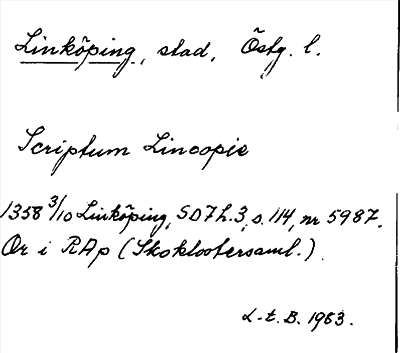 Linköping, stad, Östg. l.
Scriptum Lincopie
1358 3/10 Linköping, SD 7 h.3, s. 114, nr 5987.
Or i RAp (Skoklostersaml.).
L.t.B. 1963.